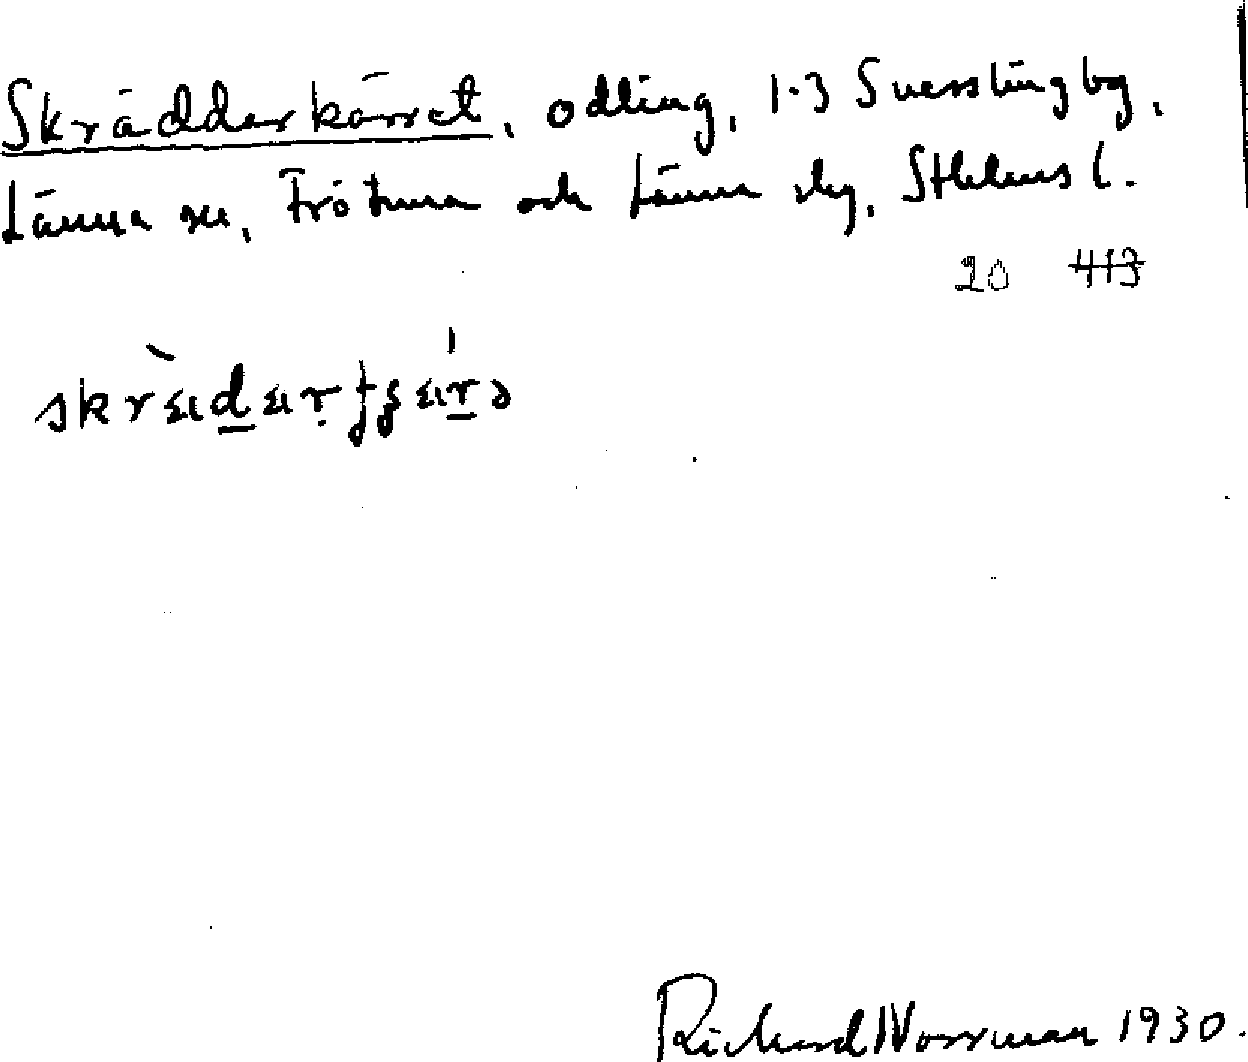 Skrädderkärret, odling, 1-3 Svesslingby,
Länna sn, Frötuna och Länna slg, Sthlms l.
20 413
Richard Norrman 1930.